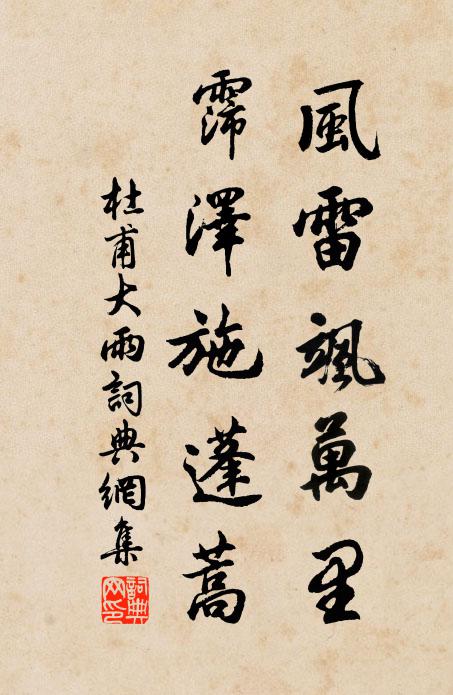 風雷颯萬里
霈澤施蓬蒿
杜甫大雨詞典網集
詞典網印